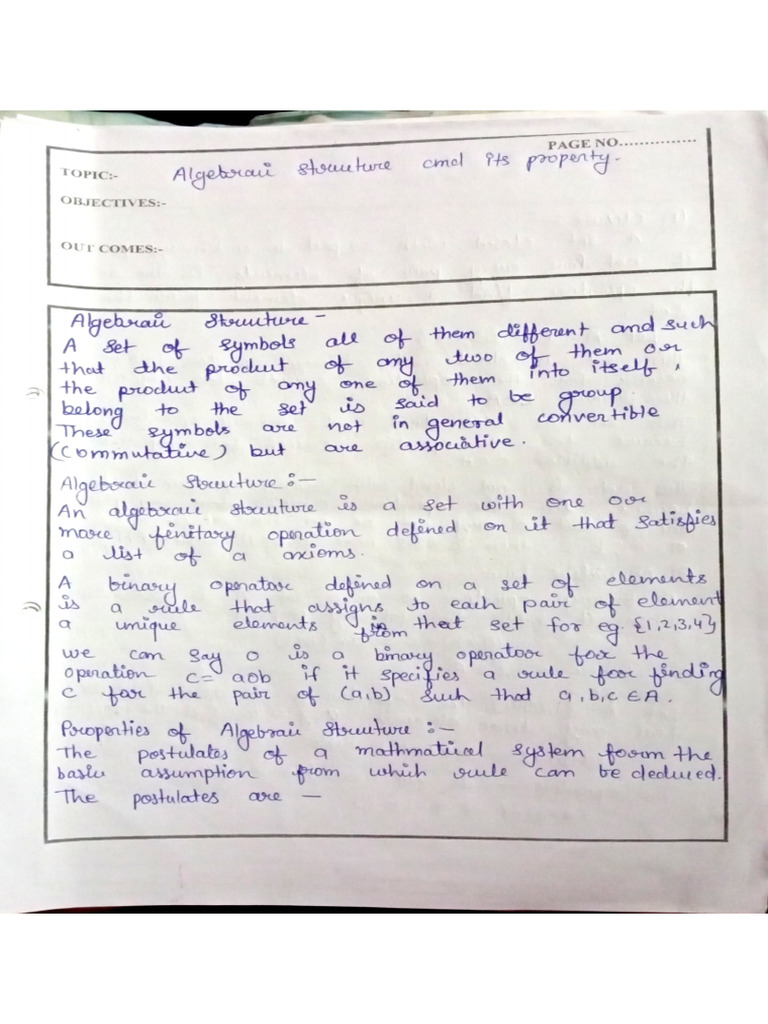 PAGE NO...............
TOPIC:- Algebraic structure and its property.
OBJECTIVES:-
OUT COMES:-
Algebraic Structure -
A set of symbols all of them different and such
that the product of any two of them or
the product of any one of them into itself,
belong to the set is said to be group.
These symbols are not in general convertible
(Commutative) but are associative.
Algebraic Structure :-
An algebraic structure is a set with one or
more finitary operation defined on it that satisfies
a list of a axioms.
A binary operator defined on a set of elements
is a rule that assigns to each pair of element
a unique elements is from that set for eg. {1,2,3,4}
we can say o is a binary operator for the
operation c= aob if it specifies a rule for finding
c for the pair of (a,b) such that a,b,c ∈ A.
Properties of Algebraic Structure :-
The postulates of a mathmatical system form the
basic assumption from which rule can be deduced.
The postulates are -